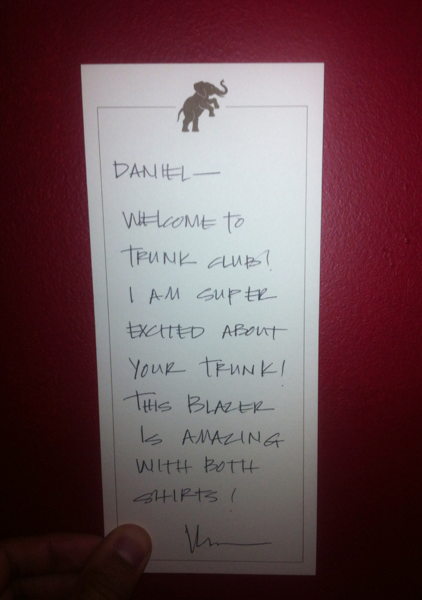 DANIEL—
WELCOME TO
TRUNK CLUB!
I AM SUPER
EXCITED ABOUT
YOUR TRUNK!
THIS BLAZER
IS AMAZING
WITH BOTH
SHIRTS!